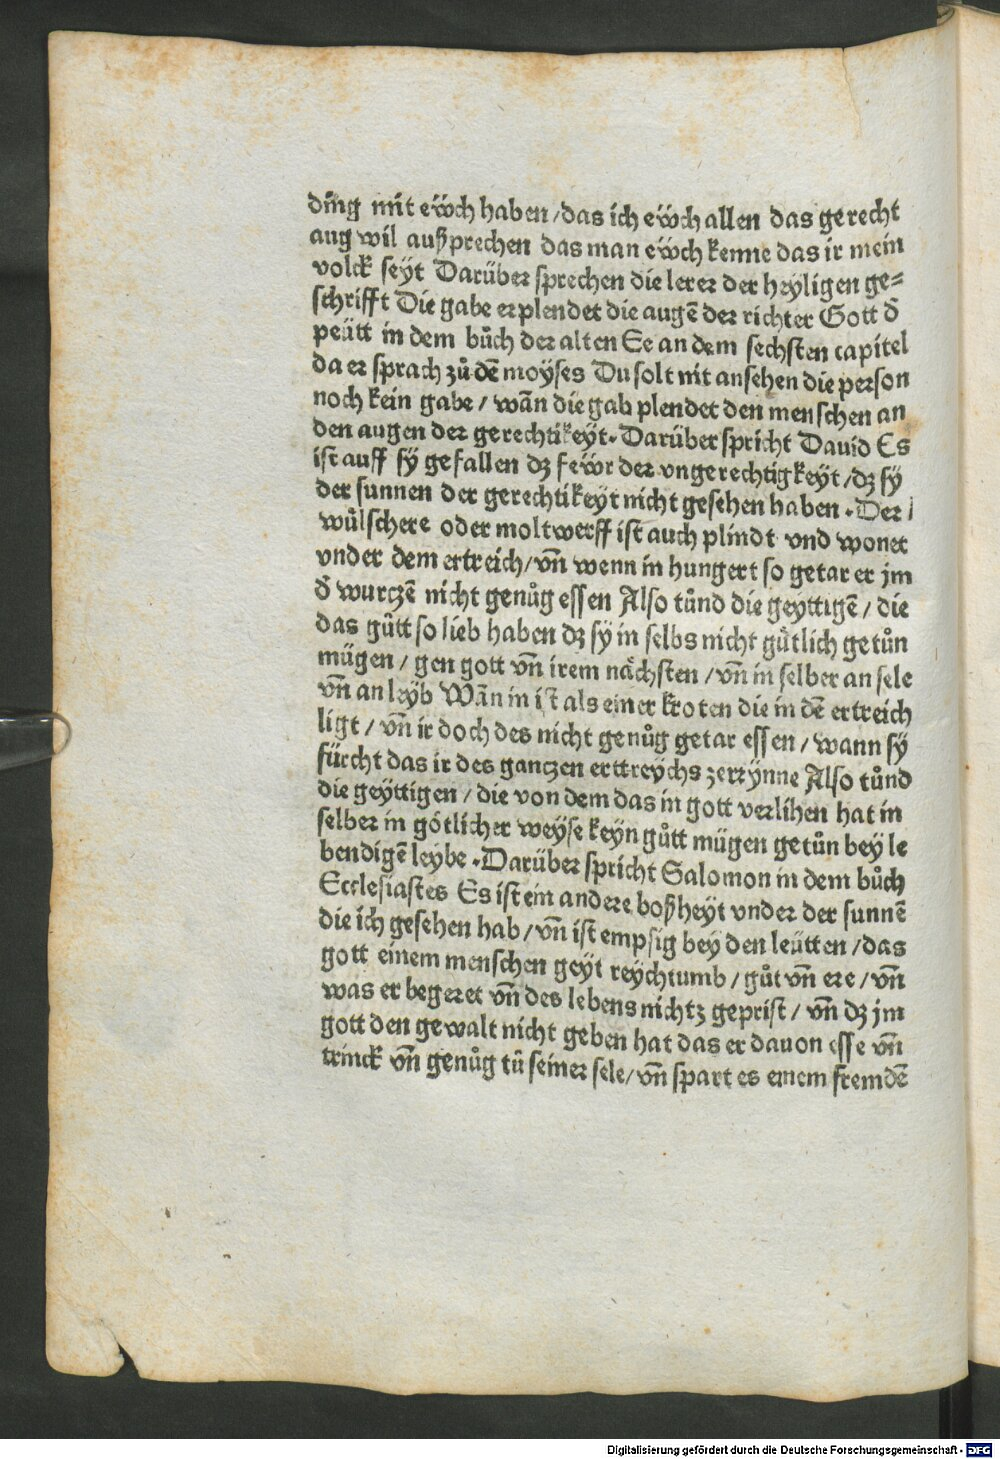 ding mit eẅch haben / das ich eẅch allen das gerecht
aug wil außprechen das man eẅch kenne das ir mein
volck seyt Darüber sprechen die lerer der heyligen ge⸗
schrifft Die gabe erplendet die augē der richter Gott d̄
peütt in dem bůch der alten Ee an dem sechsten capitel
da er sprach zů dē moÿses Du solt nit ansehen die person
noch kein gabe / wān die gab plendet den menschen an
den augen der gerechtikeyt. Darüber spricht Dauid Es
ist auff sÿ gefallen dz feẅr der vngerechtigkeyt / dz sÿ
der sunnen der gerechtikeyt nicht gesehen haben . Der
wůlschere oder moltwerff ist auch plindt vnd wonet
vnder dem ertreich / vn̄ wenn in hungert so getar er jm
d̄ wurczē nicht genůg essen Also tůnd die geyttigē / die
das gůtt so lieb haben dz sÿ in selbs nicht gůtlich getůn
mügen / gen gott vn̄ irem nächsten / vn̄ in selber an sele
vn̄ an leyb Wān in ist als einer kroten die in dē ertreich
ligt / vn̄ ir doch des nicht genůg getar essen / wann sÿ
fürcht das ir des ganczen erttreychs zerrÿnne Also tůnd
die geÿttigen / die von dem das in gott verlihen hat in
selber in götlicher weyse keyn gůtt mügen getůn bey le
bendigē leybe . Darüber spricht Salomon in dem bůch
Ecclesiastes Es ist ein andere boßheyt vnder der sunnē
die ich gesehen hab / vn̄ ist empsig bey den leütten / das
gott einem menschen geyt reychtumb / gůt vn̄ ere / vn̄
was er begeret vn̄ des lebens nichtz geprist / vn̄ dz jm
gott den gewalt nicht geben hat das er dauon esse vn̄
trinck vn̄ genůg tů seiner sele / vn̄ spart es einem fremdē
Digitalisierung gefördert durch die Deutsche Forschungsgemeinschaft - DFG